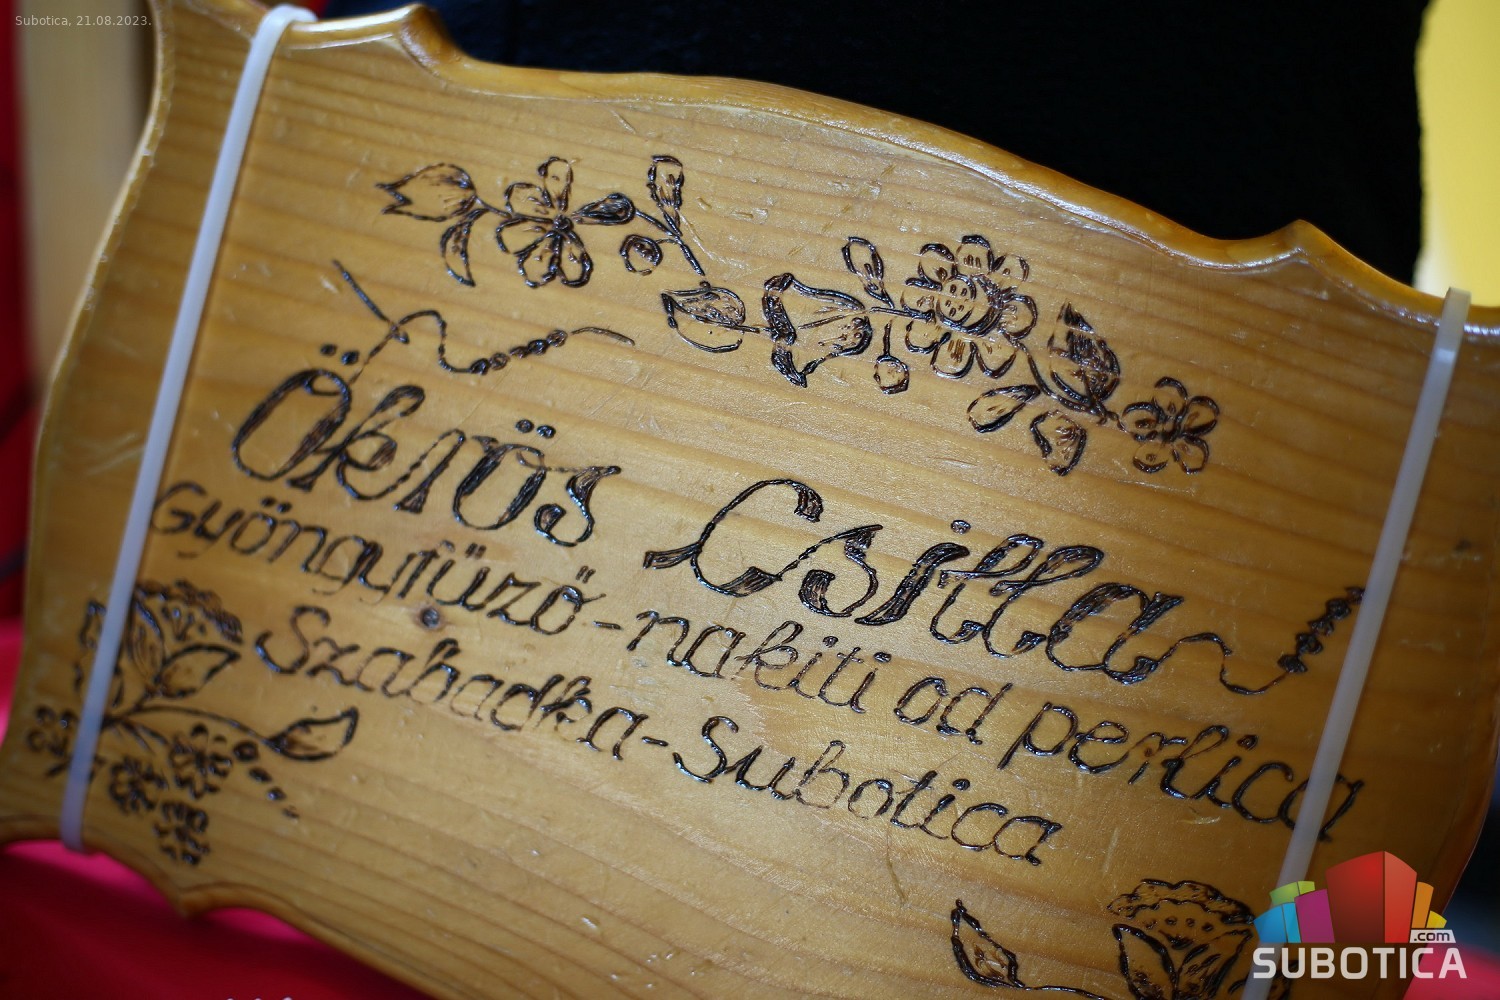 Subotica, 21.08.2023.
Ökrös Csilla
Gyöngyfűző-nakiti od perlica
Szabadka-Subotica
.com
SUBOTICA